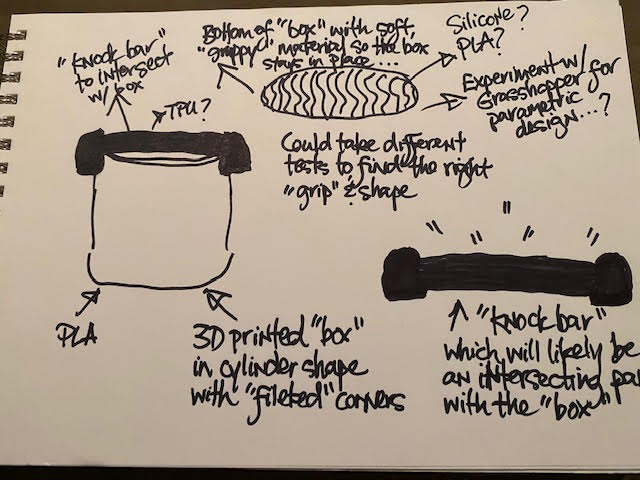 "Knock bar"
to intersect
w/ box
TPU?
Bottom of "box" with soft,
"grippy" material so the box
stays in place...
Silicone?
PLA?
Experiment w/
Grasshopper for
parametric
design...?
Could take different
tests to find the right
"grip" & shape
PLA
3D printed "box"
in cylinder shape
with "fileted" corners
"Knock bar"
which will likely be
an intersecting par
with the "box"